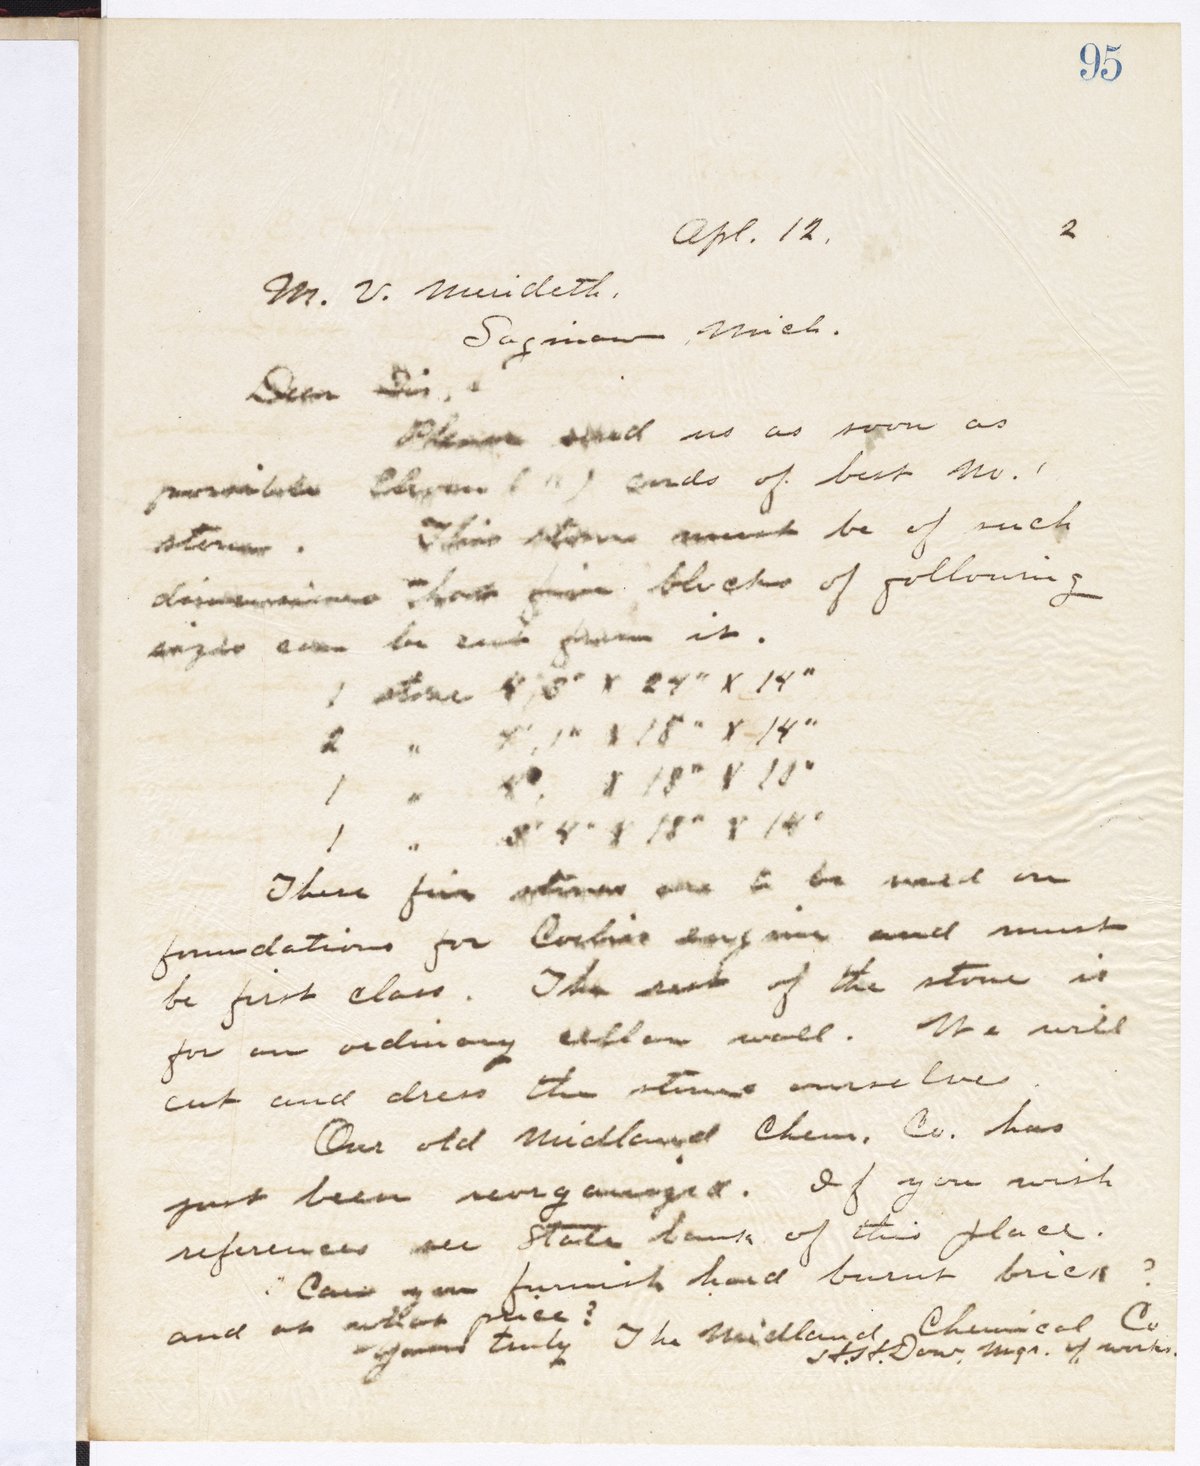 95
Apl. 12. 2
M. V. Merideth.
Saginaw, Mich.
Dear Sir,
Please send us as soon as
possible Eleven (11) cords of best No. 1
stone. This stone must be of such
dimensions that five blocks of following
sizes can be cut from it.
1 stone 4', 3" X 24" X 14"
2 " 1" X 18" X 14"
1 " X 18" X
1 " 4" X 18" X 14"
These five stones are to be used on
foundations for Corliss engine and must
be first class. The rest of the stone is
for an ordinary cellar wall. We will
cut and dress the stones ourselves.
Our old Midland Chem. Co. has
just been reorganized. If you wish
references see State bank of this place.
Can you furnish hard burnt brick?
and at what price?
yours truly The Midland Chemical Co
H.H. Dow, Mgr. of works.